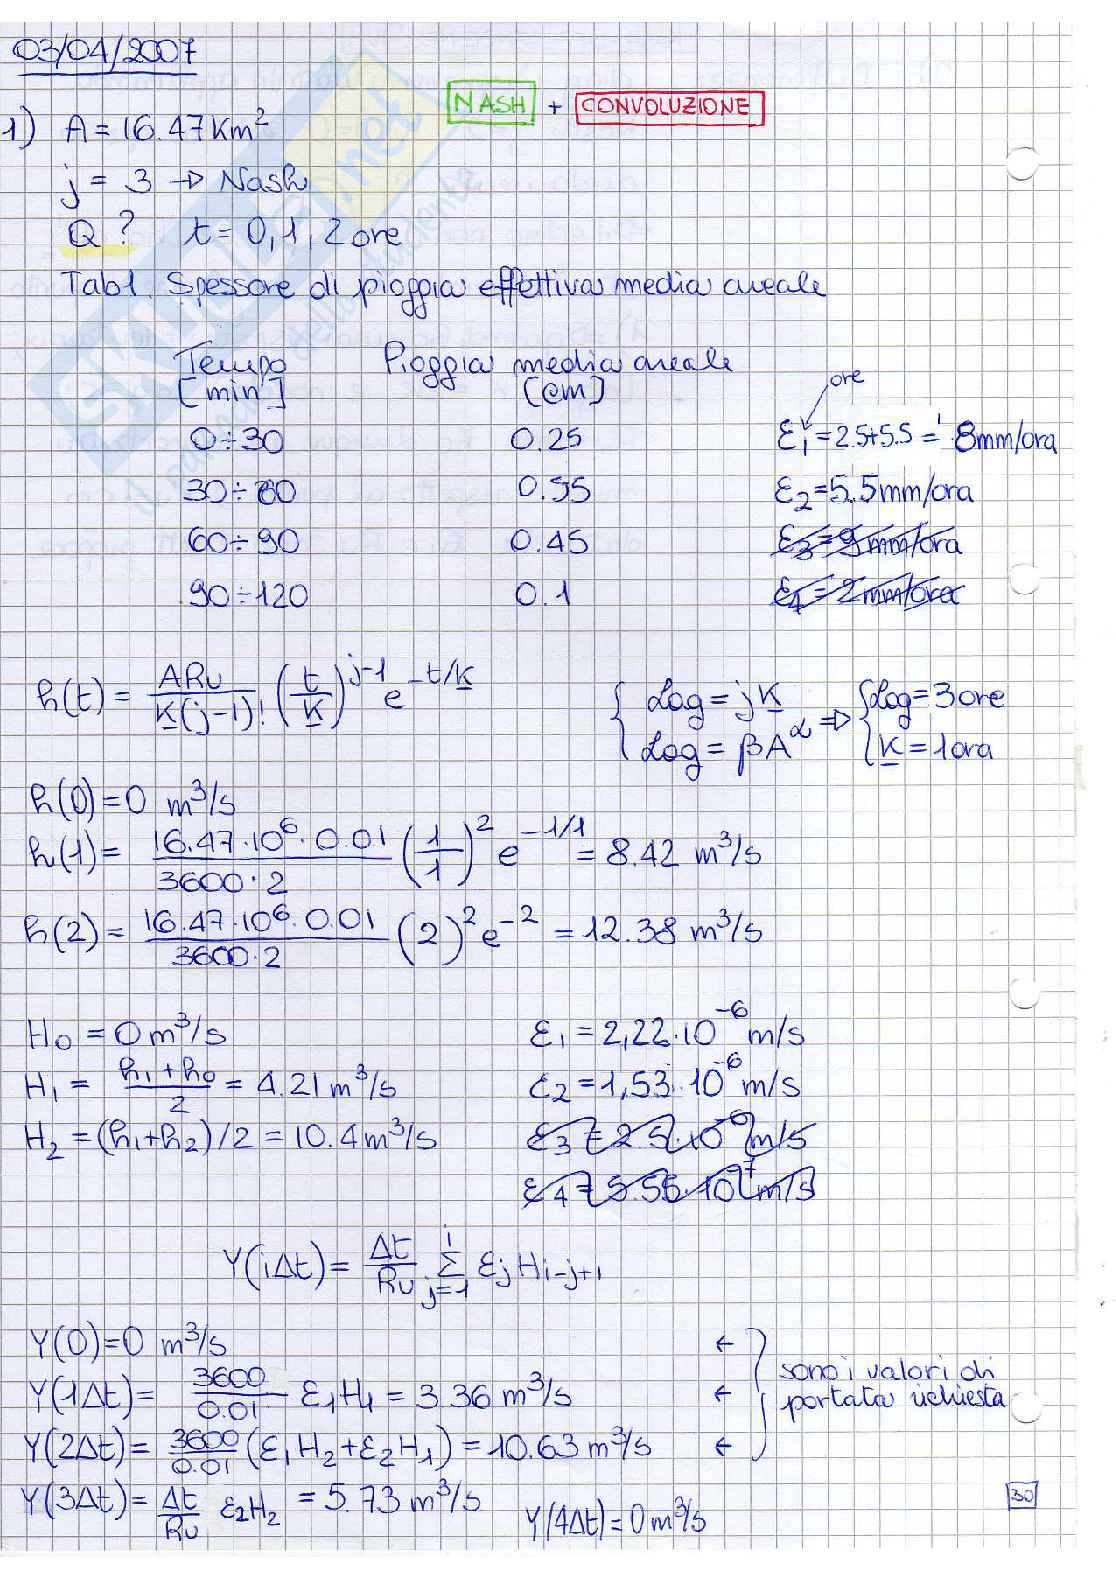 03/04/2007
NASH + CONVOLUZIONE
1) A = 16.47 Km²
j = 3 → Nash
Q ? t = 0, 1, 2 ore
Tab1. Spessore di pioggia effettiva media areale
Tempo [min] Pioggia media areale [cm]
ore
0÷30 0.25 ε₁ = 2.5+5.5 = 8mm/ora
30÷60 0.55 ε₂ = 5.5mm/ora
60÷90 0.45 ε₃ = 9mm/ora
90÷120 0.1 ε₄ = 2mm/ora
h(t) = ARu/K(j-1)! (t/K)^j-1 e^-t/K { Lag = jK Lag = βA^α ⇒ { Lag = 3ore K = 1ora
h(0) = 0 m³/s
h(1) = 16.47·10⁶·0.01/3600·2 (1/1)² e^-1/1 = 8.42 m³/s
h(2) = 16.47·10⁶·0.01/3600·2 (2)² e⁻² = 12.38 m³/s
H₀ = 0 m³/s ε₁ = 2,22·10⁻⁶ m/s
H₁ = h₁+h₀/2 = 4.21 m³/s ε₂ = 1,53·10⁻⁶ m/s
H₂ = (h₁+h₂)/2 = 10.4 m³/s ε₃ = 2.5·10⁻⁶ m/s
ε₄ = 5.56·10⁻⁷ m/s
Y(iΔt) = Δt/Ru Σ i j=1 εj Hi-j+1
Y(0) = 0 m³/s ←
Y(1Δt) = 3600/0.01 ε₁H₁ = 3.36 m³/s ←
Y(2Δt) = 3600/0.01 (ε₁H₂+ε₂H₁) = 10.63 m³/s ←
sono i valori di
portata richiesta
Y(3Δt) = Δt/Ru ε₂H₂ = 5.73 m³/s Y(4Δt) = 0 m³/s
30
SKUOLA.net